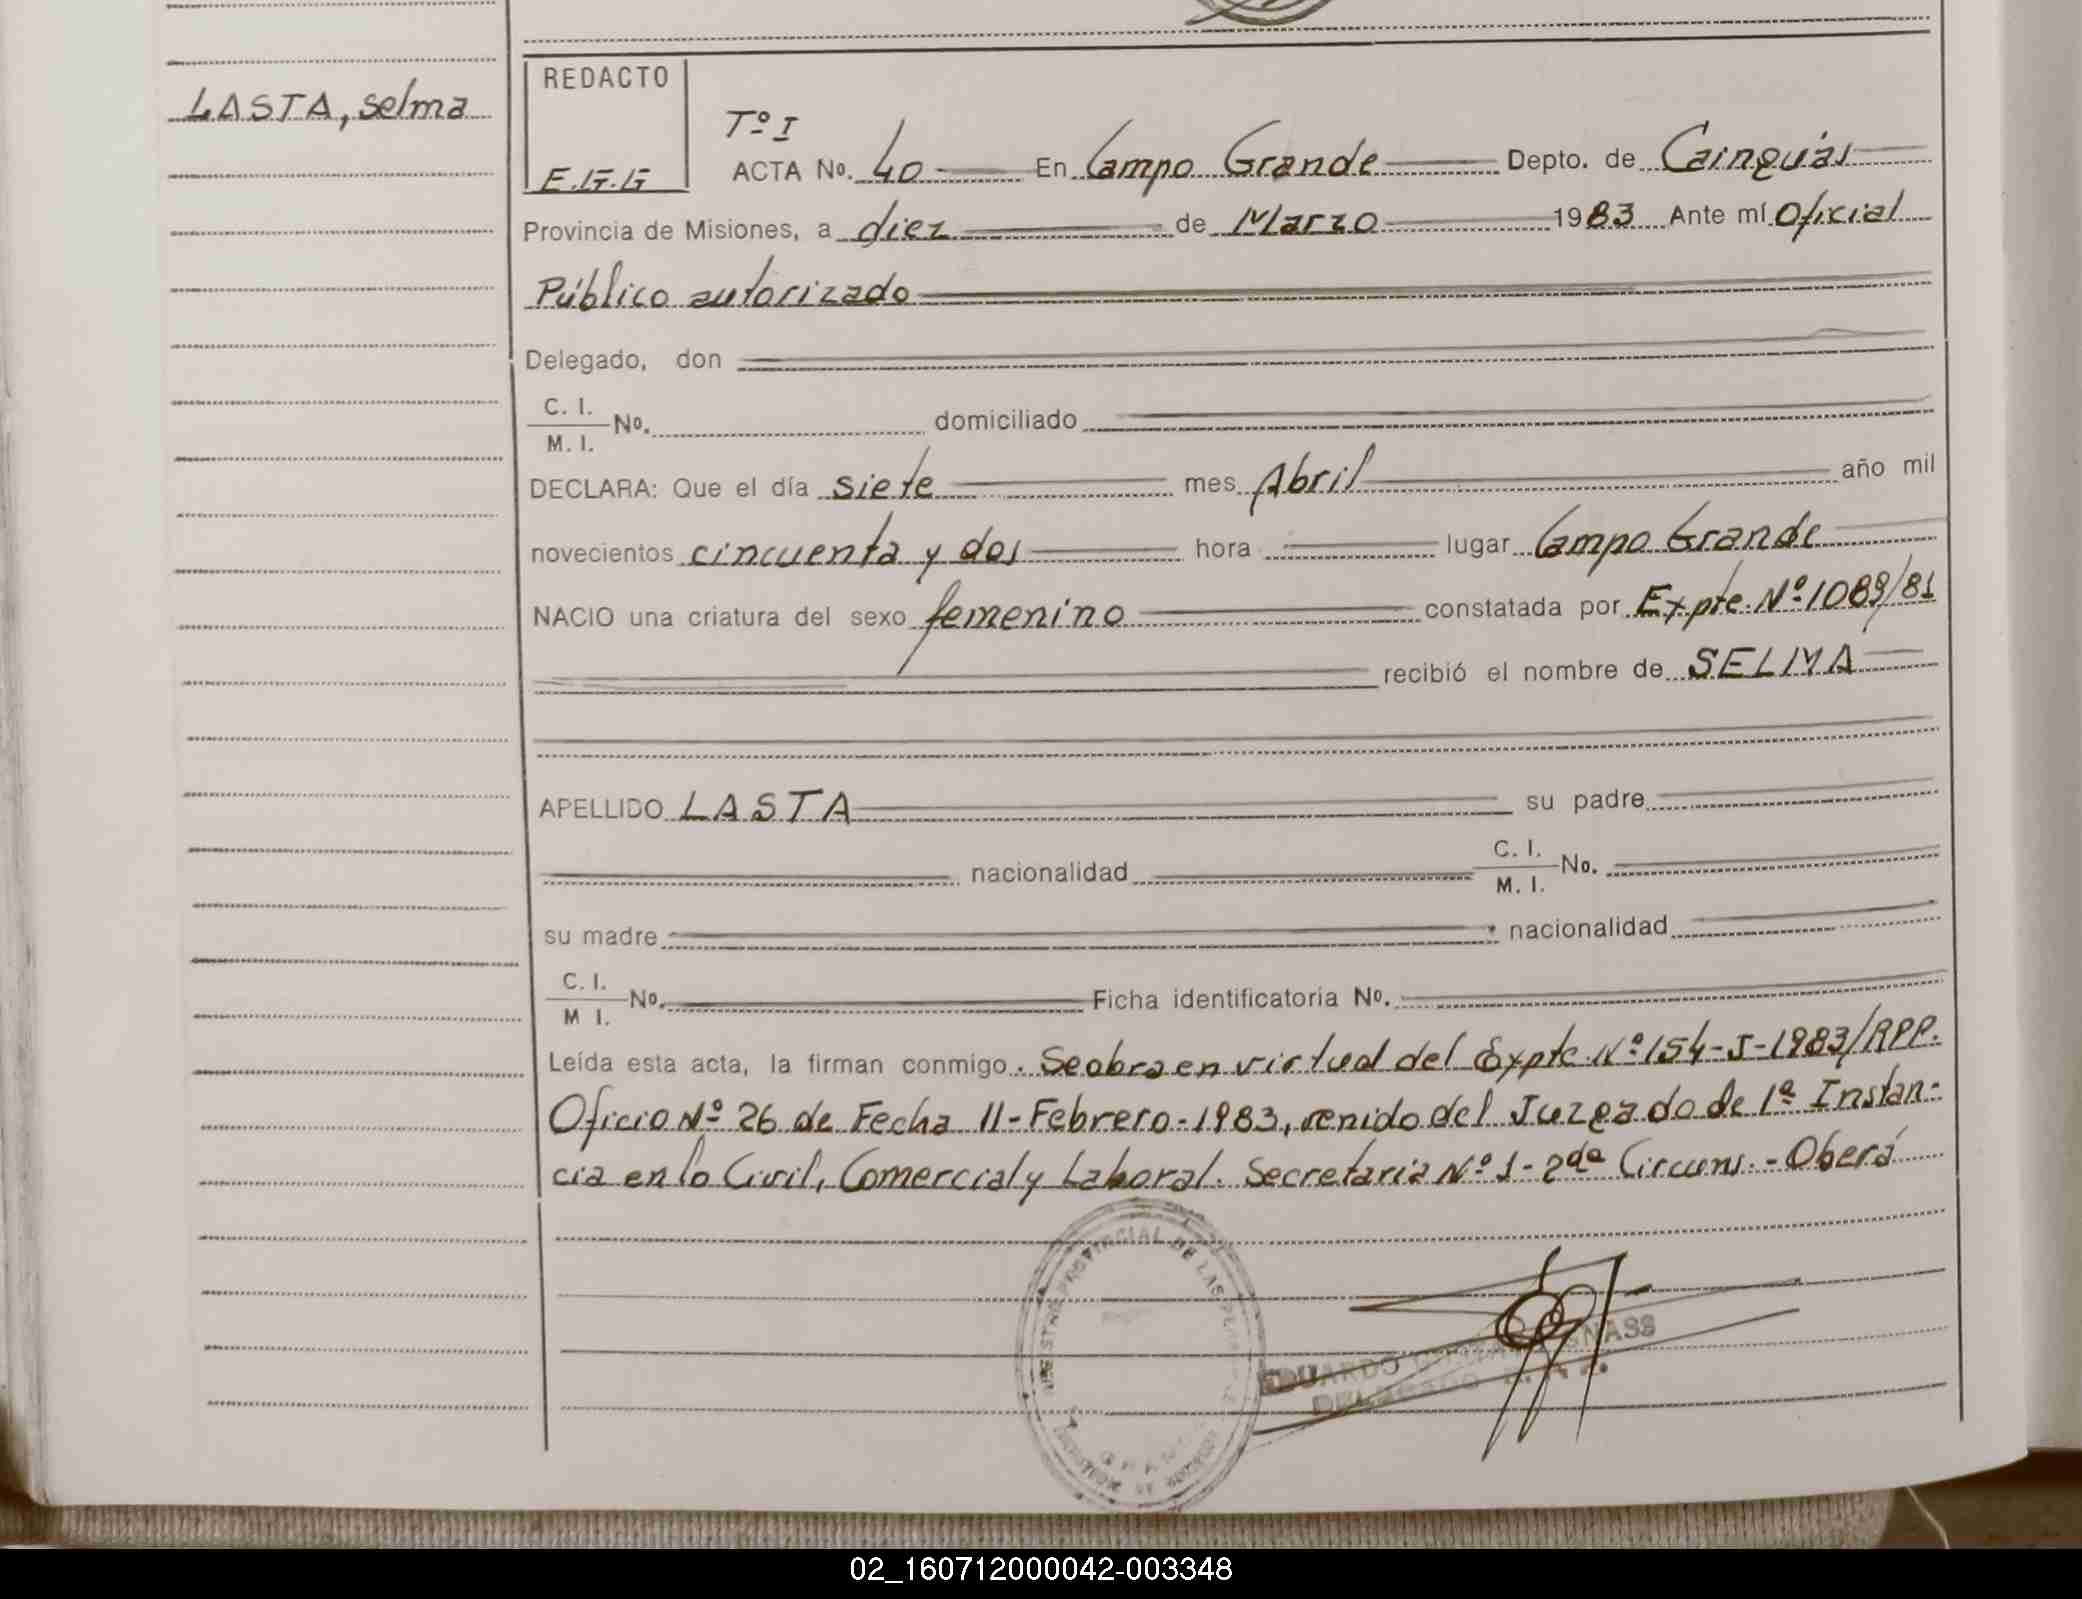 LASTA, Selma
REDACTO
E.G.G
Tº I
ACTA No. 40 En Campo Grande Depto. de Cainguás
Provincia de Misiones, a diez de Marzo 1983 Ante mí Oficial
Público autorizado
Delegado, don
C. I.
M. I. No. domiciliado
DECLARA: Que el día siete mes Abril año mil
novecientos cincuenta y dos hora lugar Campo Grande
NACIO una criatura del sexo femenino constatada por Expte. Nº 1089/81
recibió el nombre de SELMA
APELLIDO LASTA su padre
nacionalidad C. I.
M. I. No.
su madre nacionalidad
C. I.
M I. No. Ficha identificatoria No.
Leída esta acta, la firman conmigo. Se obra en virtual del Expte Nº 154-J-1983/RPP.
Oficio Nº 26 de Fecha 11-Febrero-1983, venido del Juzgado de 1ª Instan-
cia en lo Civil, Comercial y Laboral. Secretaria Nº 1-2da Circuns.-Oberá
PROVINCIAL DE LAS
EDUARDO
DELEGADO
02_160712000042-003348